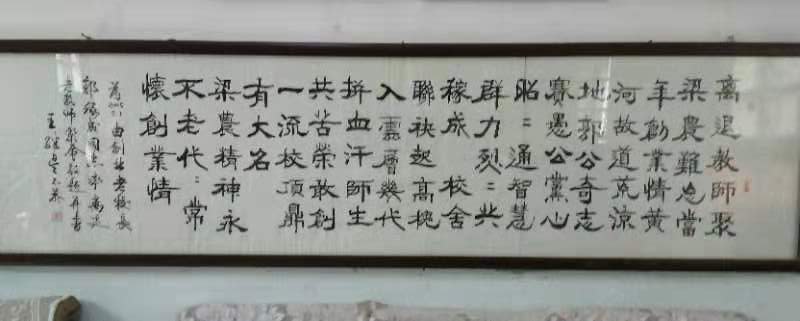 離退教師聚
梁農難忘當
年創業情黃
河故道荒涼
地郭公奇志
賽愚公黨心
昭〻通智慧
群力烈〻共
稼成校舍
聯袂起高槐
入雲層幾代
拼血汗師生
共苦榮敢創
一流校頂鼎
有大名
梁農精神永
不老代〻常
懷創業情
老校長
郭緣成同志
老教師聚會